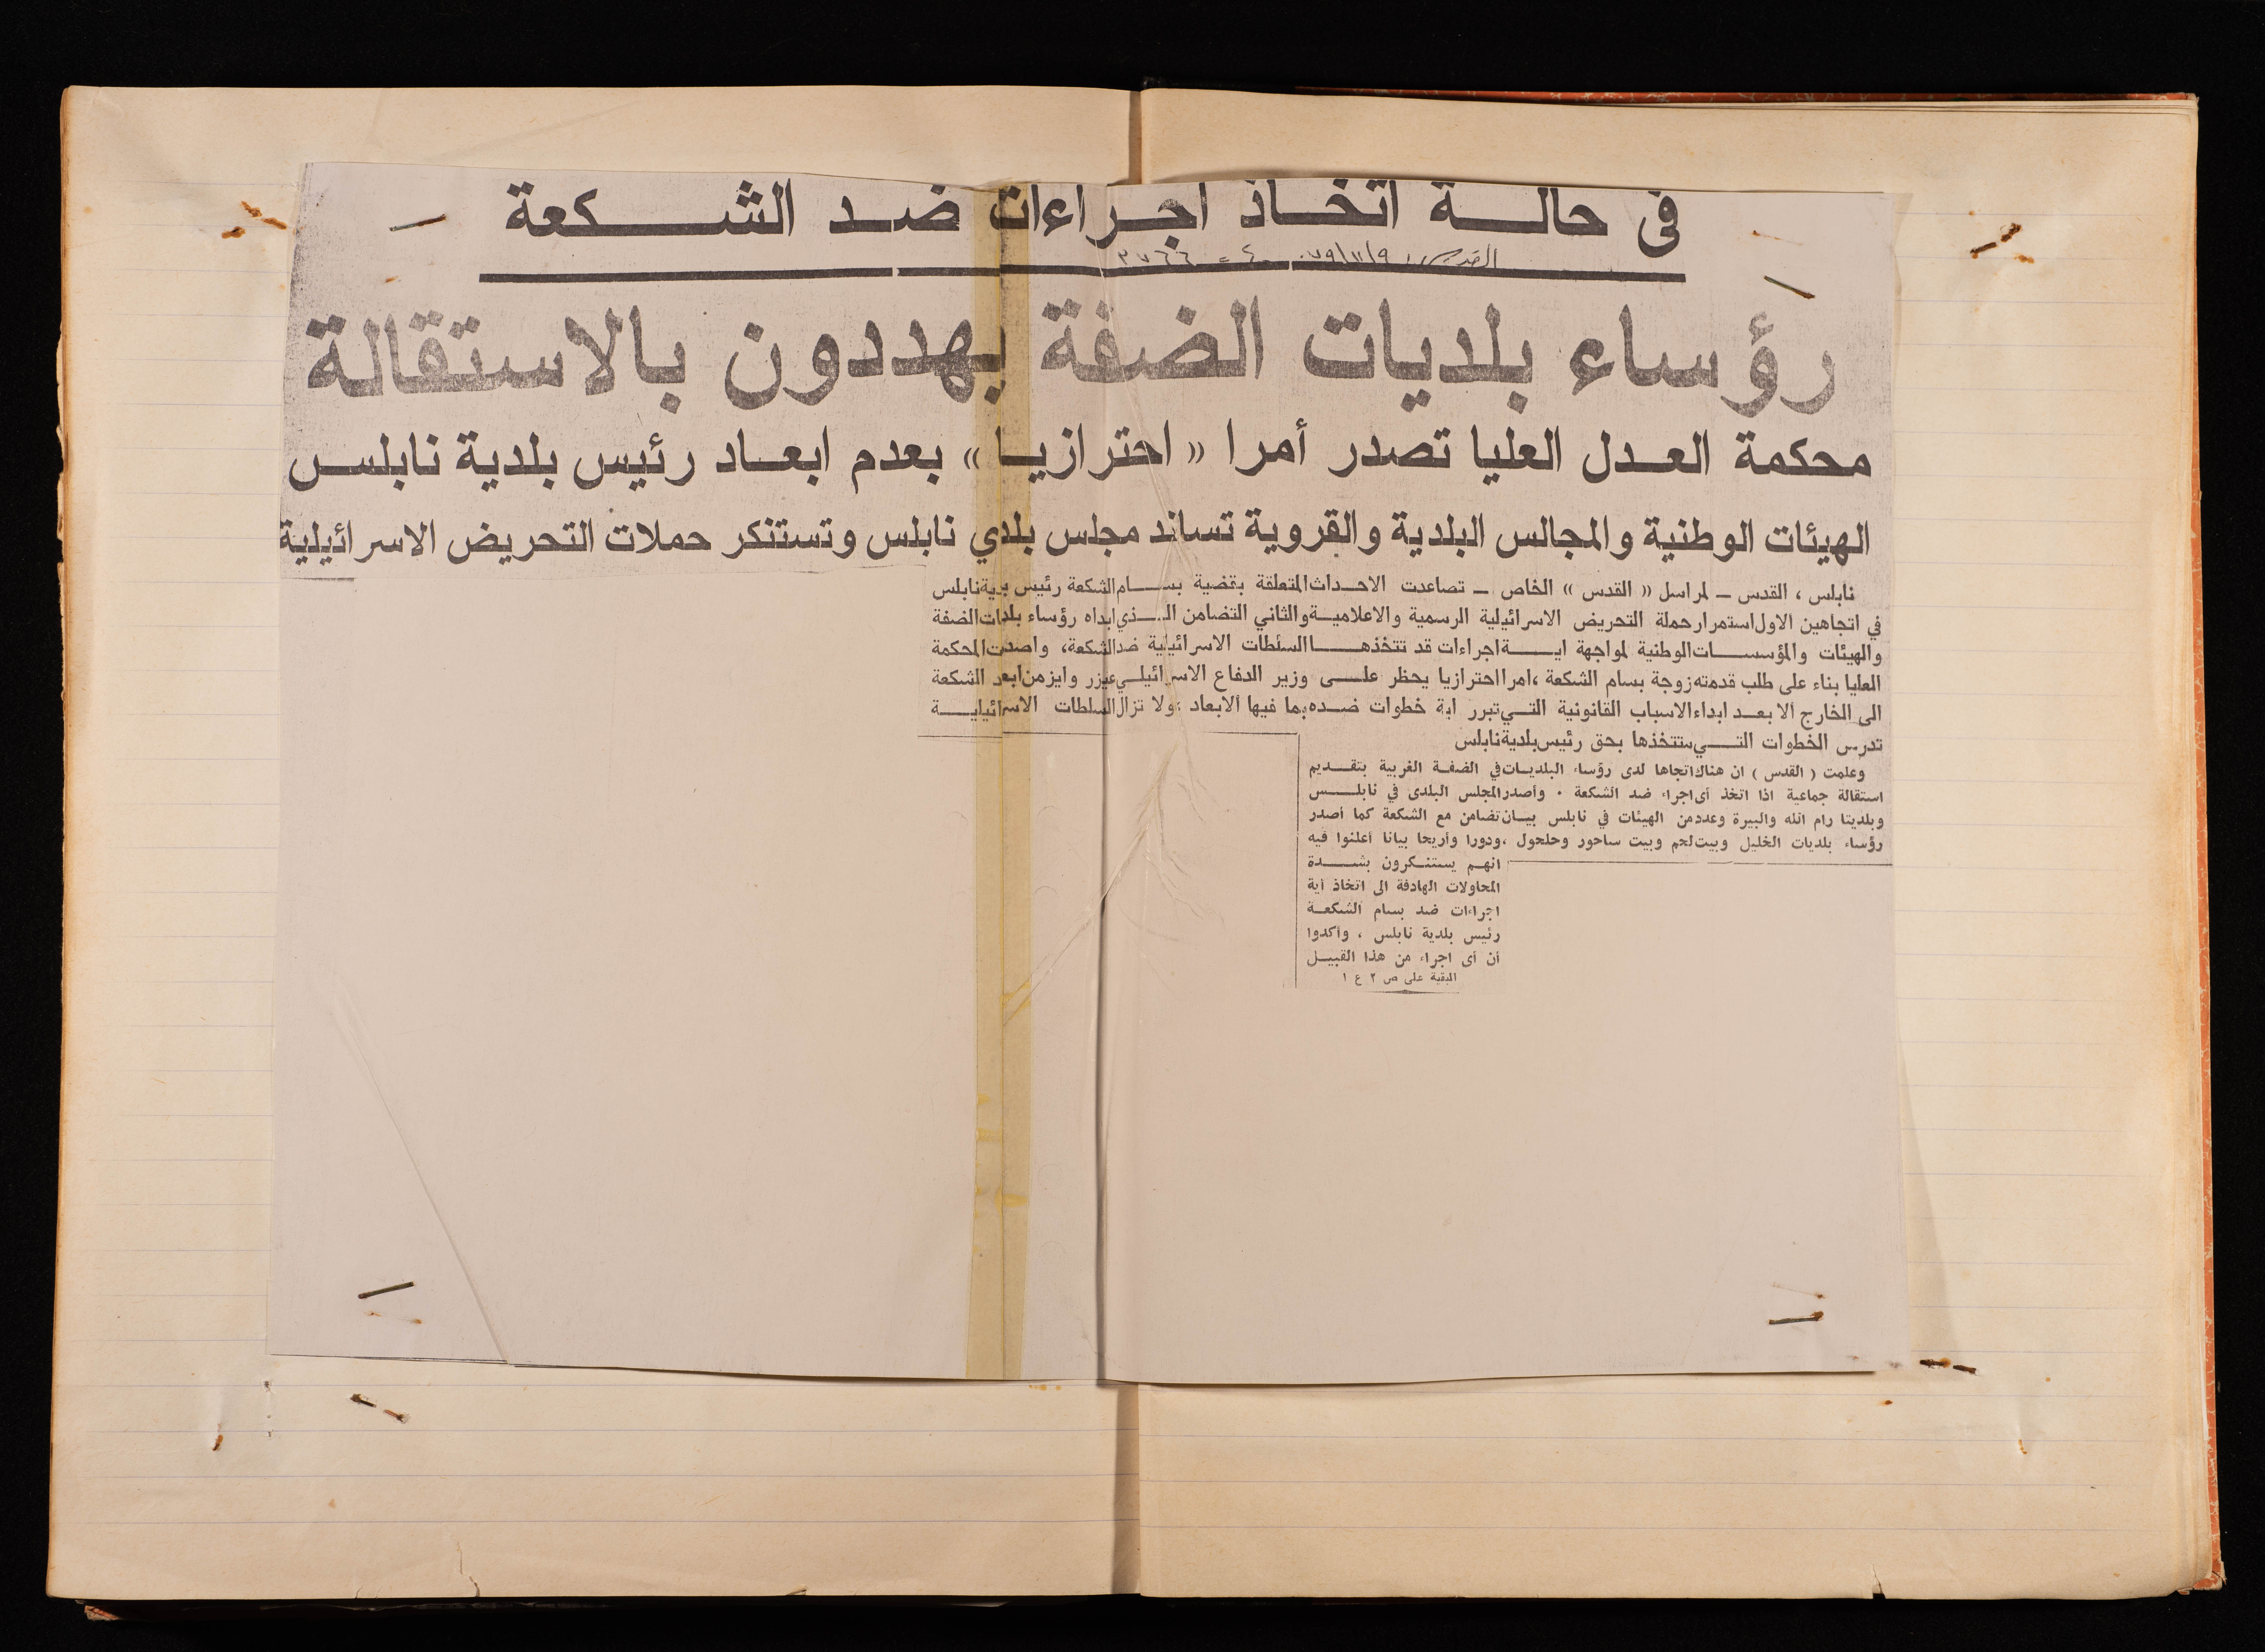 في حالـــة اتخـــاذ اجـــراءات ضـــد الشـــكعة
القدس ٧٩/١١/٩ ع = ٣٧٦٦
رؤساء بلديات الضفة يهددون بالاستقالة
محكمة العـدل العليا تصدر أمرا « احترازيـا » بعدم ابعـاد رئيس بلدية نابلس
الهيئات الوطنية والمجالس البلدية والقروية تساند مجلس بلدي نابلس وتستنكر حملات التحريض الاسرائيلية
نابلس ، القدس ــ لمراسل « القدس » الخاص ــ تصاعدت الاحـداث المتعلقة بقضية بسـام الشكعة رئيس نابلس
في اتجاهين الاول استمرار حملة التحريض الاسرائيلية الرسمية والاعلاميـة والثاني التضامن الـذي ابداه رؤساء بلدات الضفة
والهيئات والمؤسسـات الوطنية لمواجهة ايـة اجراءات قد تتخذهـا السلطات الاسرائيلية ضد الشكعة، واصدت المحكمة
العليا بناء على طلب قدمته زوجة بسام الشكعة ،امرا احترازيا يحظر علـى وزير الدفاع الاسرائيلـي عيزر وايزمن ابعد الشكعة
الى الخارج الا بعـد ابداء الاسباب القانونية التـي تبرر اية خطوات ضـده بما فيها الابعاد ،ولا تزال السلطات الاسرائيليـة
تدرس الخطوات التـي ستتخذها بحق رئيس بلدية نابلس
وعلمت ( القدس ) ان هناك اتجاها لدى رؤساء البلديـات في الضفـة الغربية بتقـديم
استقالة جماعية اذا اتخذ أى اجراء ضد الشكعة ٠ وأصدر المجلس البلدى في نابلـس
وبلديتا رام الله والبيرة وعدد من الهيئات في نابلس بيـان تضامن مع الشكعة كما أصدر
رؤساء بلديات الخليل وبيت لحم وبيت ساحور وحلحول ،ودورا وأريحا بيانا أعلنوا فيه
انهـم يستنـكرون بشــدة
المحاولات الهادفة الى اتخاذ اية
اجراءات ضد بسام الشكعـة
رئيس بلدية نابلس ، وأكدوا
أن أى اجراء من هذا القبيـل
البقية على ص ٢ ع ١